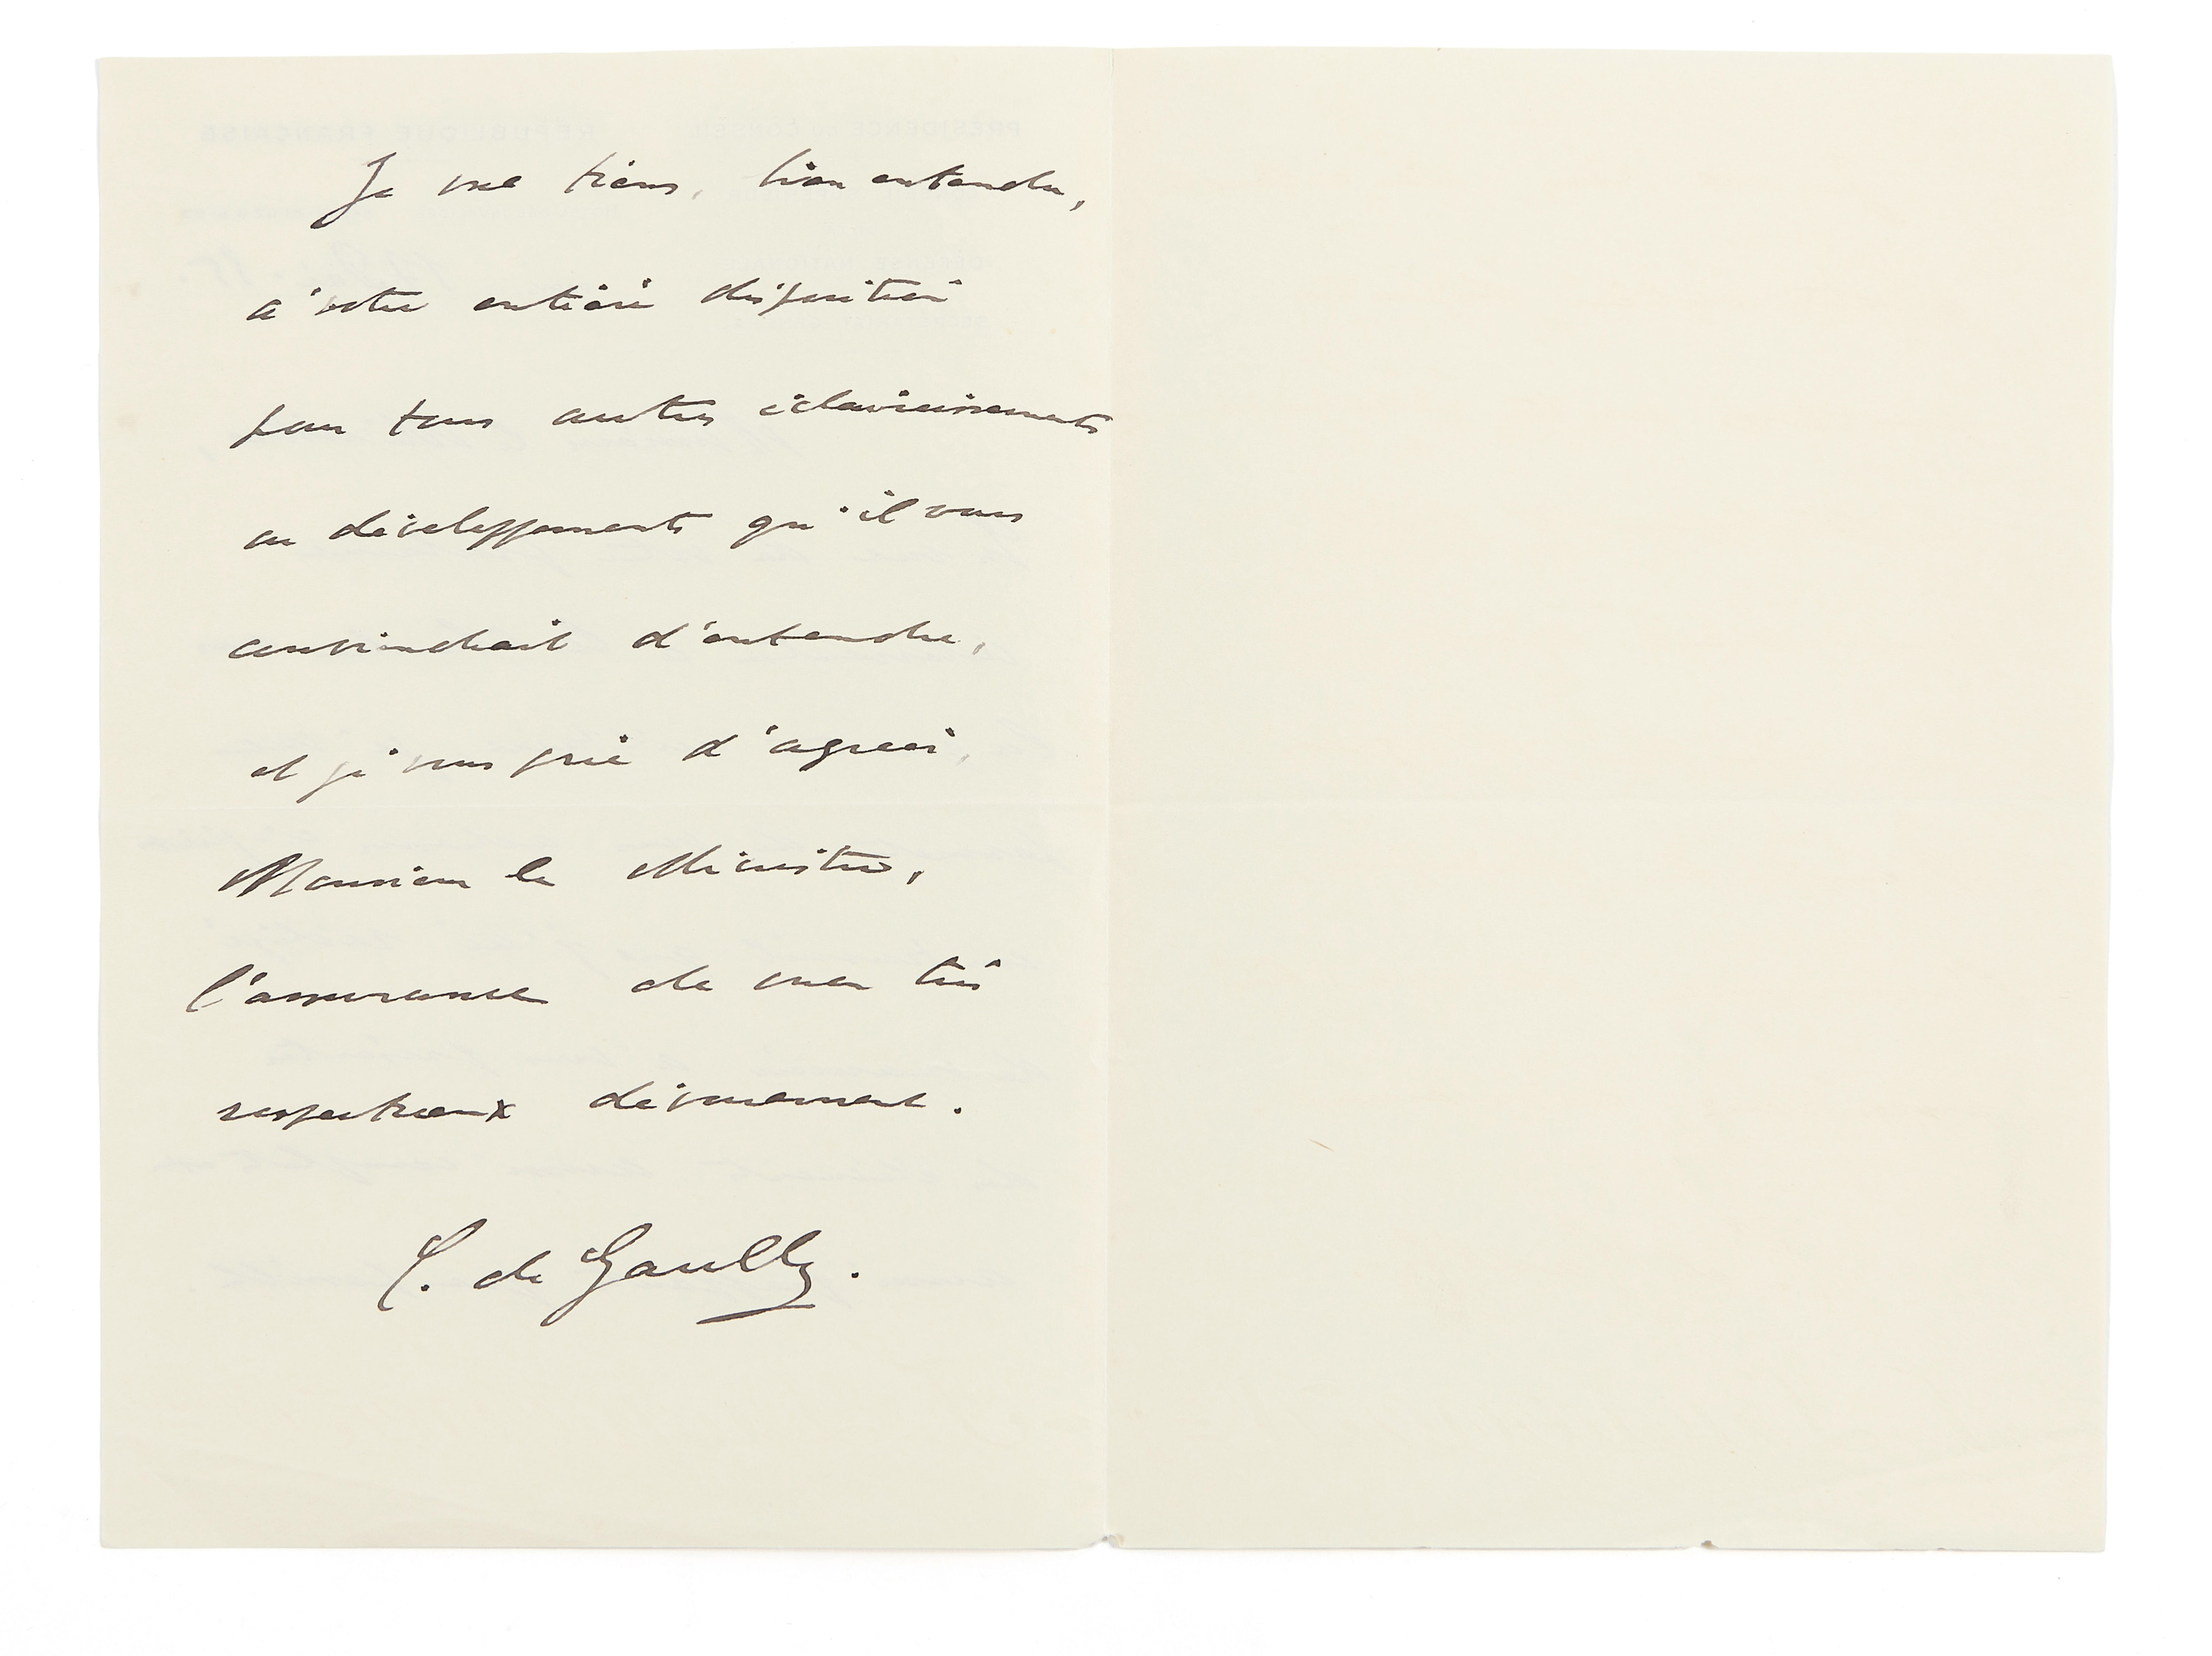 Je me tiens, bien entendu,
à votre entière disposition
pour tous autres éclaircissements
ou développements qu'il vous
conviendrait d'entendre,
et je vous prie d'agréer,
Monsieur le Ministre,
l'assurance de mon très
respectueux dévouement.
C. de Gaulle.
PRÉSIDENCE DU CONSEIL
RÉPUBLIQUE FRANÇAISE